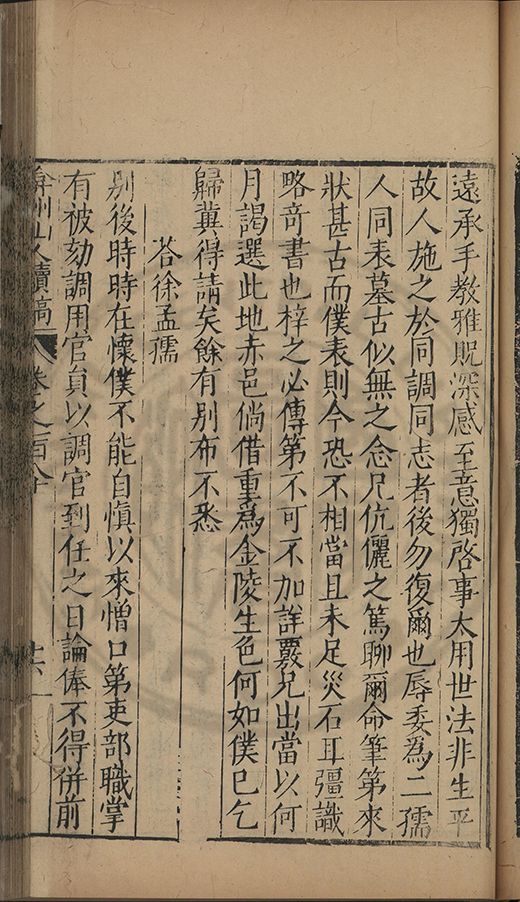 遠承手教雅貺深感至意獨啓事太用世法非生平
故人施之於同調同志者後勿復爾也辱委爲二孺
人同表墓古似無之念兄伉儷之篤聊爾命筆第來
狀甚古而僕表則今恐不相當且未足災石耳彊識
略奇書也梓之必傳第不可不加詳覈兄出當以何
月謁選此地赤邑倘借重爲金陵生色何如僕已乞
歸冀得請矣餘有別布不悉
荅徐孟孺
別後時時在懷僕不能自愼以來憎口第吏部職掌
有被劾調用官員以調官到任之日論俸不得併前
弇州山人續稿 卷之一百八十 十六